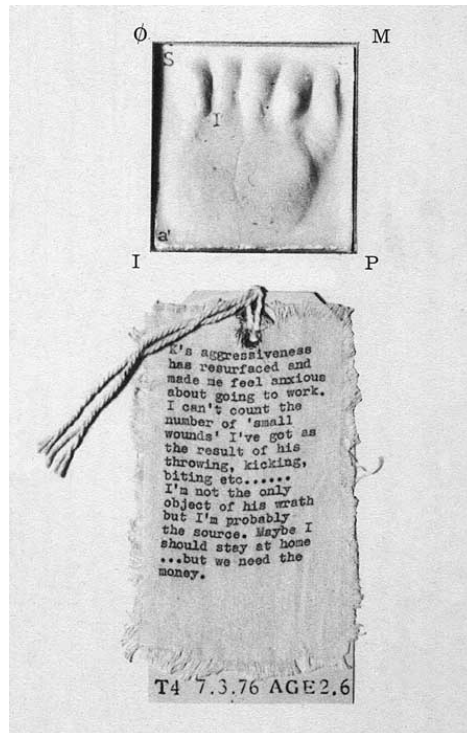 Ø M
S
I
a'
I P
K's aggressiveness
has resurfaced and
made me feel anxious
about going to work.
I can't count the
number of 'small
wounds' I've got as
the result of his
throwing, kicking,
biting etc......
I'm not the only
object of his wrath
but I'm probably
the source. Maybe I
should stay at home
...but we need the
money.
T4 7.3.76 AGE2.6